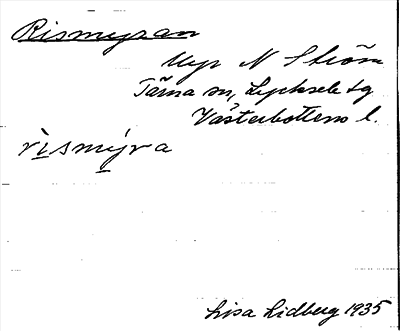 Rismyran
Myr N Ström
Tärna sn, Lycksele tg
Västerbottens l.
rìsmýra
Lisa Lidberg 1935